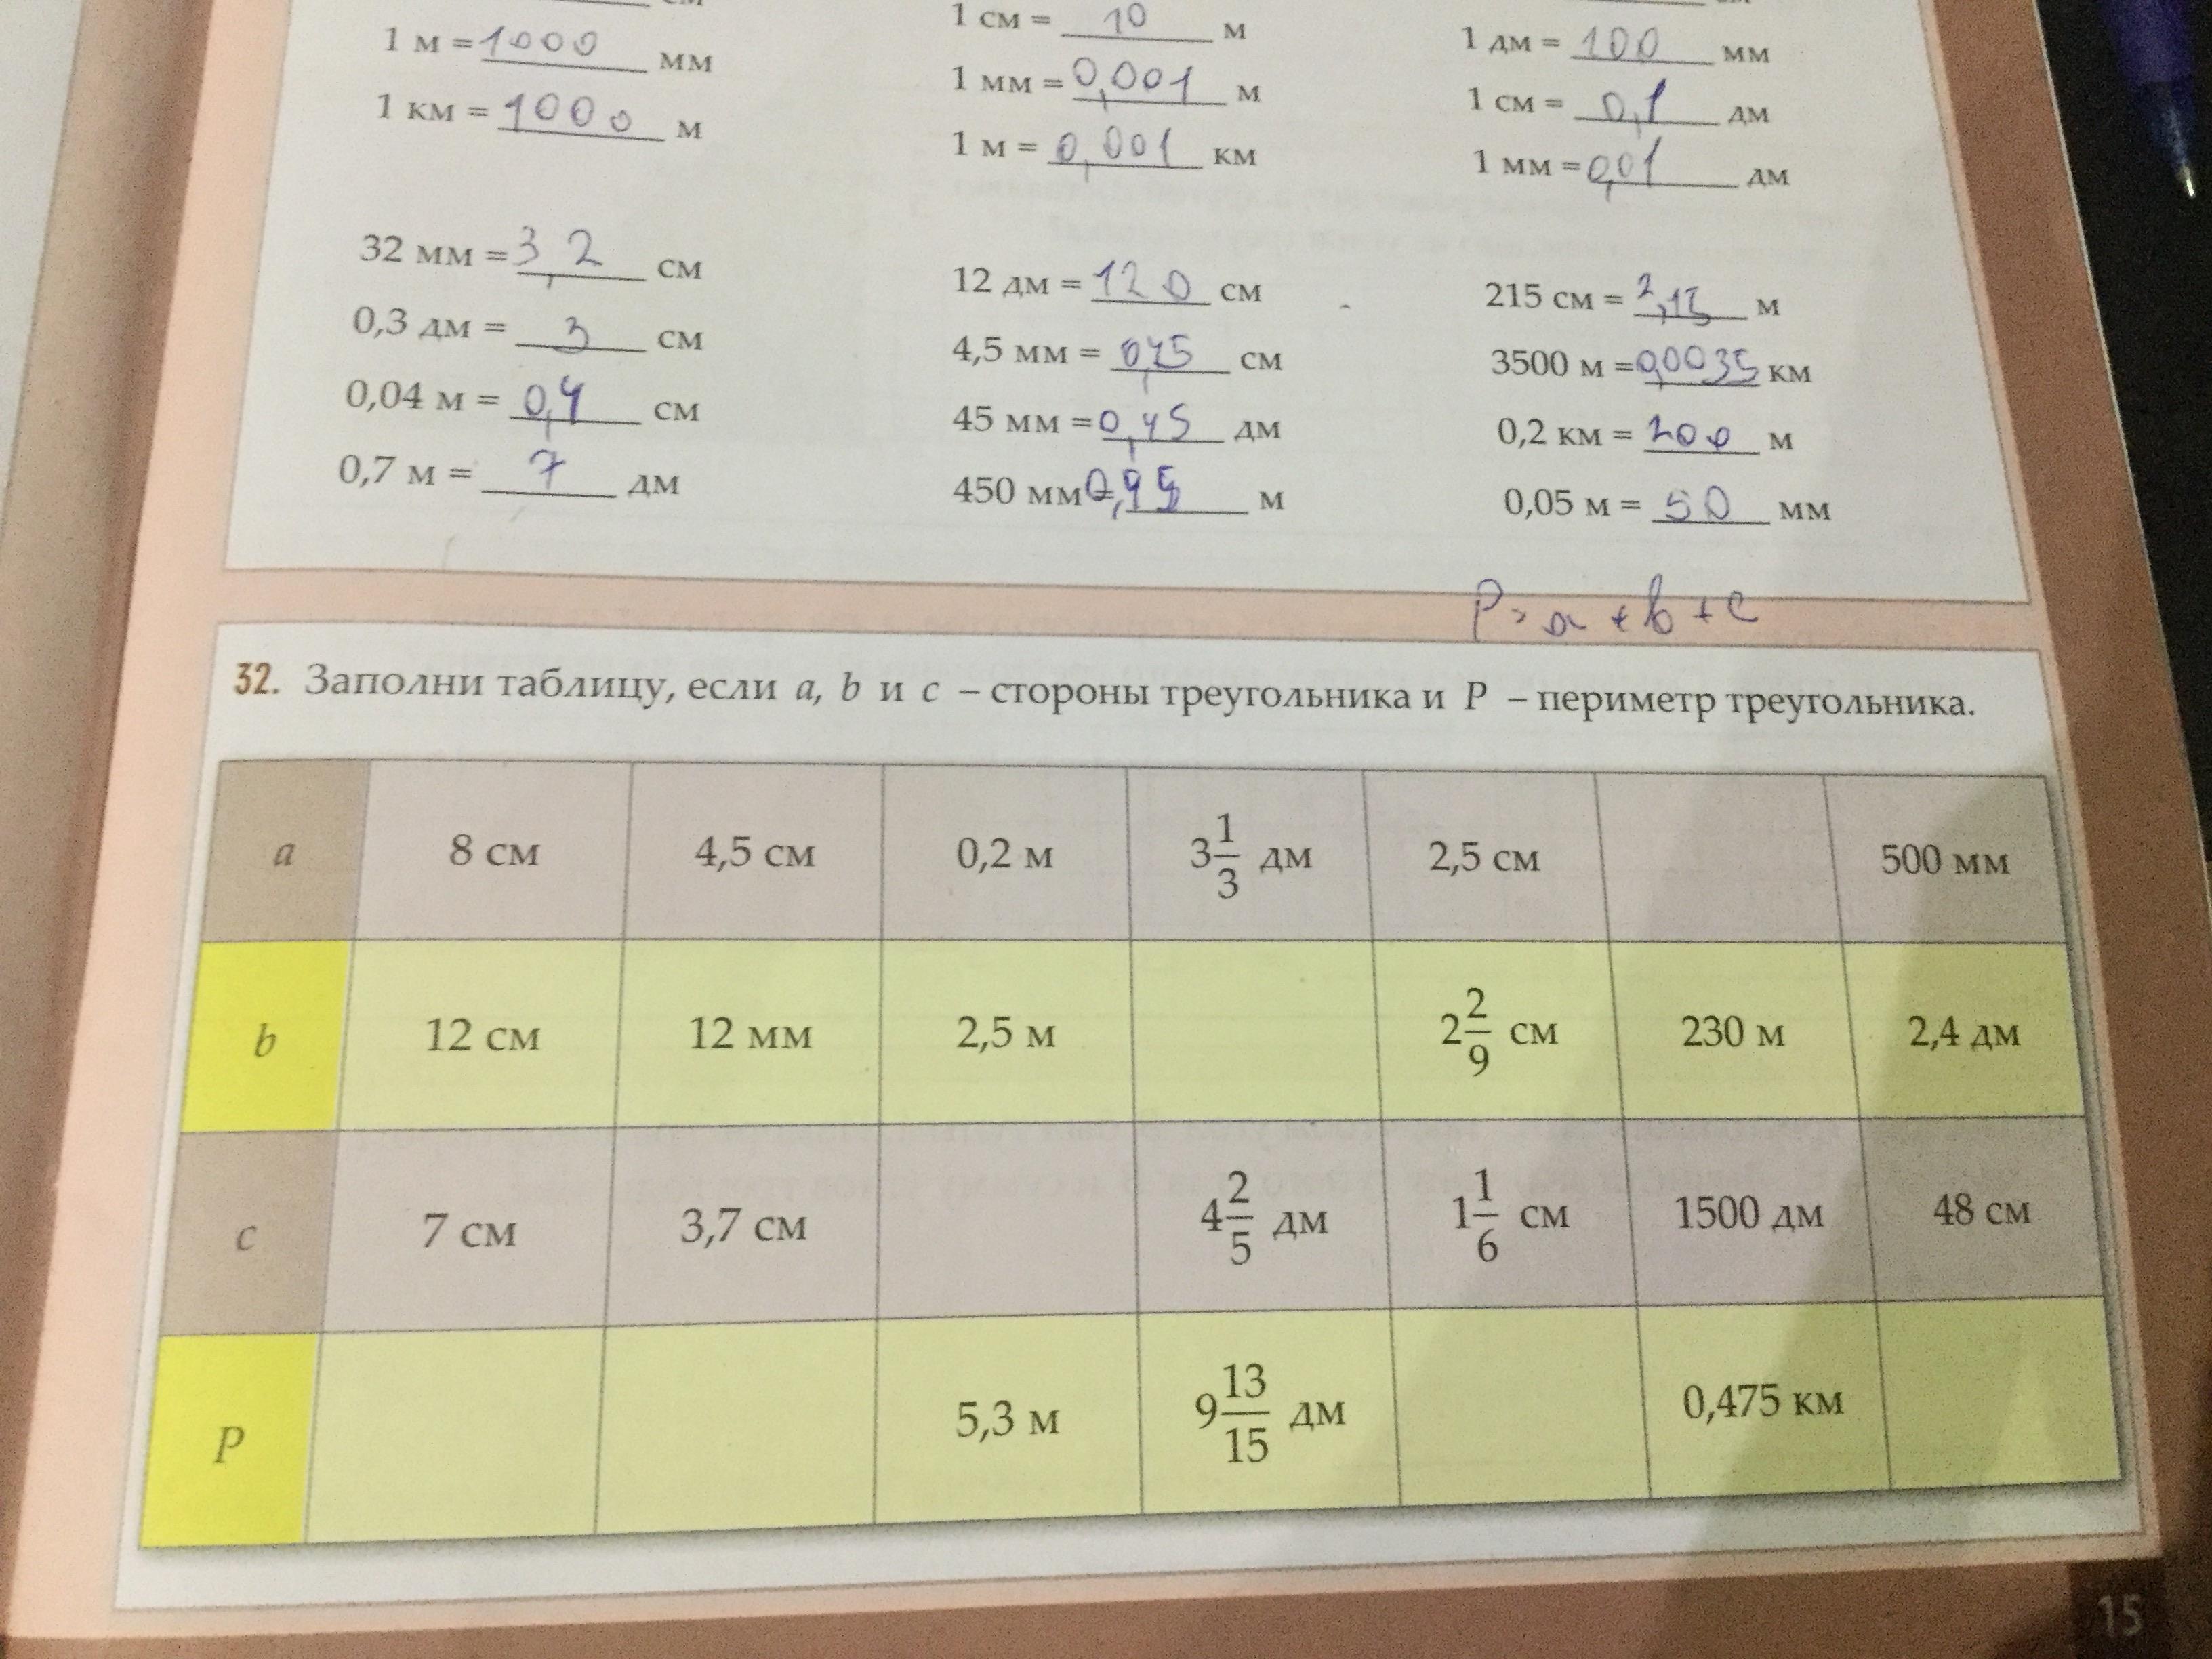 1 м = 1000 мм
1 км = 1000 м
1 см = 10 м
1 мм = 0,001 м
1 м = 0,001 км
1 дм = 100 мм
1 см = 0,1 дм
1 мм = 0,01 дм
32 мм = 3,2 см
0,3 дм = 3 см
0,04 м = 0,4 см
0,7 м = 7 дм
12 дм = 120 см
4,5 мм = 0,45 см
45 мм = 0,45 дм
450 мм = 0,45 м
215 см = 2,15 м
3500 м = 0,0035 км
0,2 км = 200 м
0,05 м = 50 мм
P = a + b + c
32. Заполни таблицу, если a, b и c – стороны треугольника и P – периметр треугольника.
a 8 см 4,5 см 0,2 м 3 1/3 дм 2,5 см 500 мм
b 12 см 12 мм 2,5 м 2 2/9 см 230 м 2,4 дм
c 7 см 3,7 см 4 2/5 дм 1 1/6 см 1500 дм 48 см
P 5,3 м 9 13/15 дм 0,475 км
15